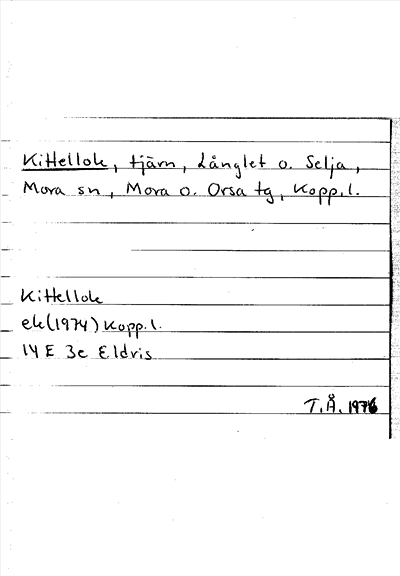 Kittellok, tjärn, Långlet o. Selja,
Mora sn, Mora o. Orsa tg, Kopp.l.
Kittellok
ek(1974) Kopp.l.
14 E 3c Eldris
T.Å. 1976